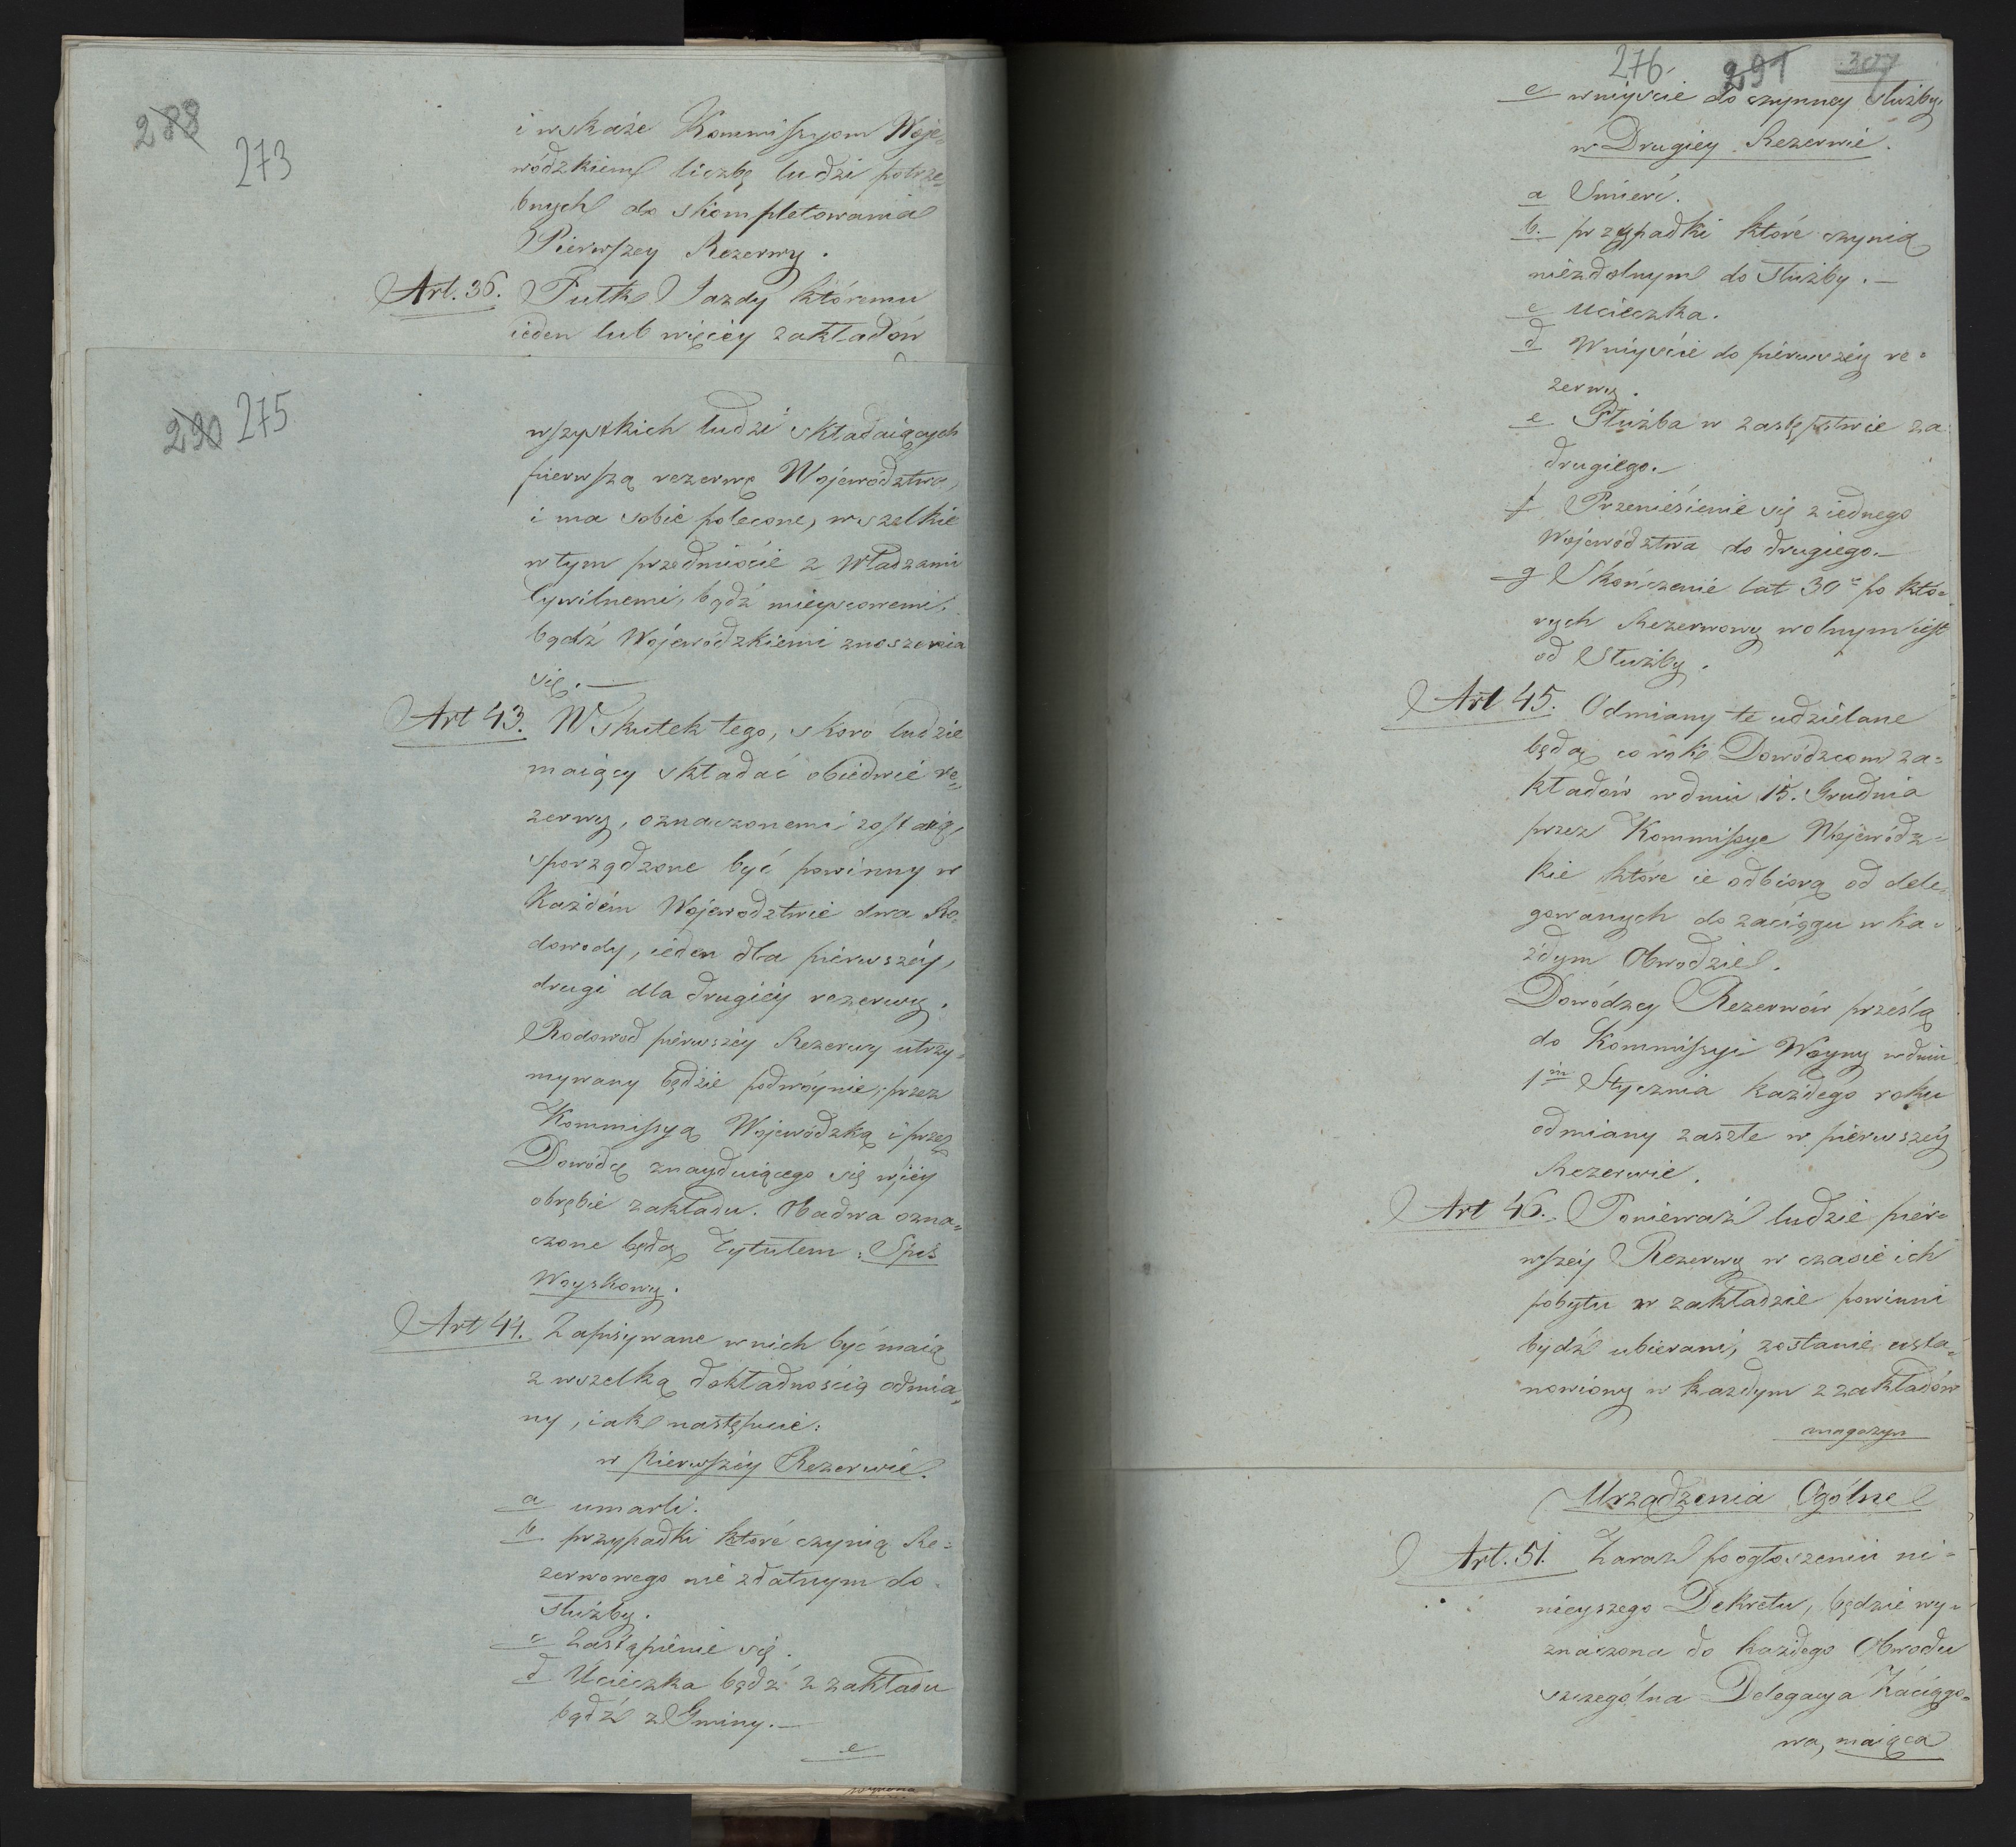 288
273
i wskaże Kommissyom Woje-
wódzkiem liczbę ludzi potrze-
bnych do skompletowania
Pierwszey Rezerwy.
Art. 36. Pułk Jazdy któremu
ieden lub więcéy zakładów
290 275
wszystkich ludzi składaiących
pierwszą rezerwę Województwa,
i ma sobie polecone, wszelkie
w tym przedmiocie z Władzami
Cywilnemi, bądź mieyscowemi,
bądź Wojewódzkiemi znoszenia
się.—
Art 43. W skutek tego, skoro ludzie
maiący składać obiedwie re-
zerwy, oznaczonemi zostaią,
sporządzone być powinny w
Każdém Wojewodztwie dwa Ro-
dowody, ieden dla pierwszéy,
drugi dla drugiéy rezerwy.
Rodowod pierwszéy Rezerwy utrzy-
mywany będzie podwóynie, przez
Kommissyą Wojewódzką i przez
Dowódcę znayduiącego się w iéy
obrębie zakładu. Obadwa ozna-
czone będą Tytułem: Spis
Woyskowy.
Art 44. Zapisywane w nich być maią
z wszelką dokładnością odmia-
ny, iak następuie:
w pierwszéy Rezerwie.
a umarli.
b przypadki które czynią Re-
zerwowego nie zdatnym do
służby.
c Zastąpienie się.
d Ucieczka bądź z zakładu
bądź z Gminy.—
e
276. 291 307
e wniyście do czynney służby.
w Drugiéy Rezerwie.
a Śmierć.
b. przypadki które czynią
niezdolnym do służby.—
c Ucieczka.
d Wniyście do pierwszéy re-
zerwy.
e Służba w zastępstwie za
drugiego.—
f Przeniesienie się z iednego
Województwa do drugiego.—
g Skończenie lat 30 po któ-
rych Rezerwowy wolnym iest
od Służby.
Art 45. Odmiany te udzielane
będą co rok Dowódzcom za-
kładów w dniu 15. Grudnia
przez Kommissye Wojewódz-
kie które ie odbiorą od dele-
gowanych do zaciągu w ka-
żdym Obwodzie.
Dowódzcy Rezerwów prześlą
do Kommissyi Woyny w dniu
1m Stycznia każdego roku
odmiany zaszłe w pierwszéy
Rezerwie.
Art 46. Ponieważ ludzie pier-
wszéy Rezerwy w czasie ich
pobytu w zakładzie powinni
bydź ubierani, zostanie usta-
nowiony w każdym z zakładów
magazyn
Urządzenia Ogólne
Art. 51. Zaraz po ogłoszeniu ni-
nieyszego Dekretu, będzie wy-
znaczona do każdego Obwodu
szczególna Delegacya Zaciągo-
wa, maiąca